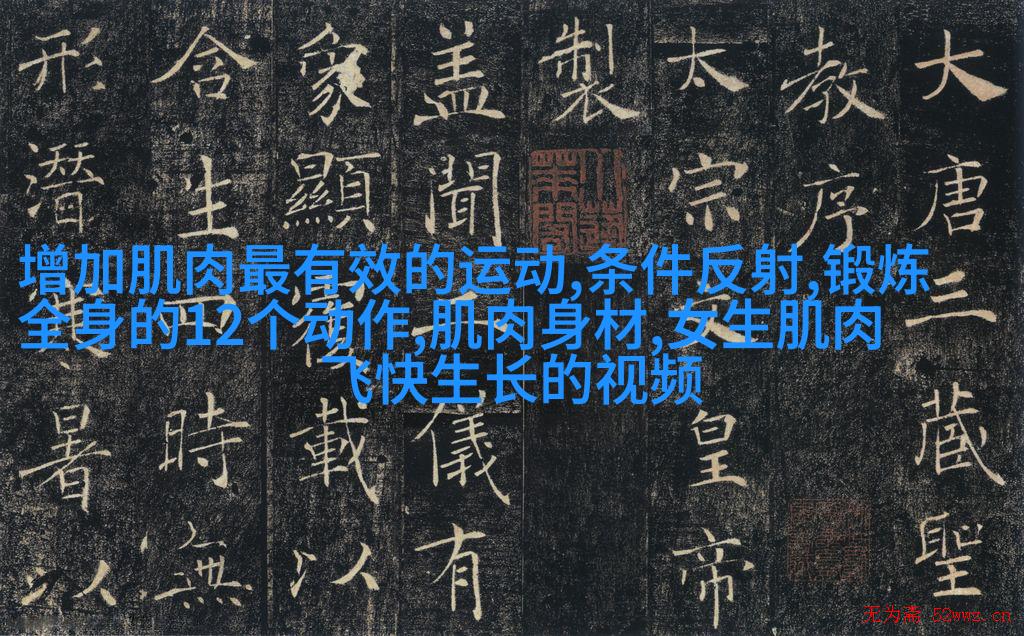 大唐三藏聖
教序
太宗文皇帝
製
盖聞二儀有
象顯覆載以
含生四時無
形潛暑以
增加肌肉最有效的运动,条件反射,锻炼
全身的12个动作,肌肉身材,女生肌肉
飞快生长的视频
无为斋 52wwz.cn